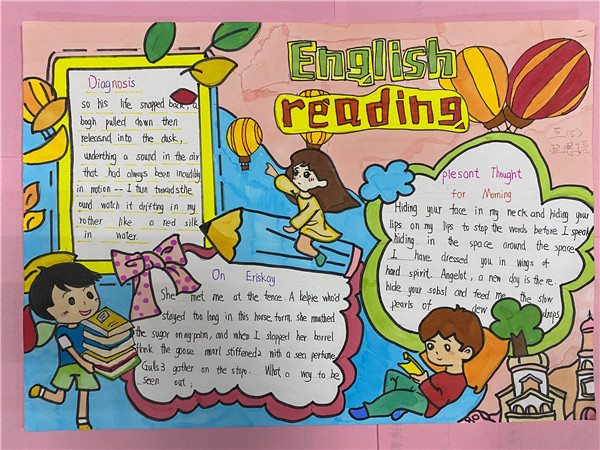 English
reading
Diagnosis
so his life snapped back, a
bogh pulled down then
releasnd into the dusk,
underthing a sound in the air
that had always been inaudibly
in motion -- I turn towardsthe
ound watch it drifting in my
rother like a red silk
in water.
On Eriskay
She met me at the fence. A kelpie who'd
stayed too long in this horse form, she mouthed
the sugar on my palm, and when I slapped her barrel
flank the goose marl stiffened2 with a sea perfume
Gulls3 gather on the stopo. What a way to be
seen out;
plesant Thought
for Morning
Hiding your face in my neck and hiding your
lips on my lips to stop the words before I speak
hiding in the space around the space
I have dressed you in wings of
hard spirit. Angelot, a new day is the re.
hide your sobsl and feed me the slow
pearls of dew drops